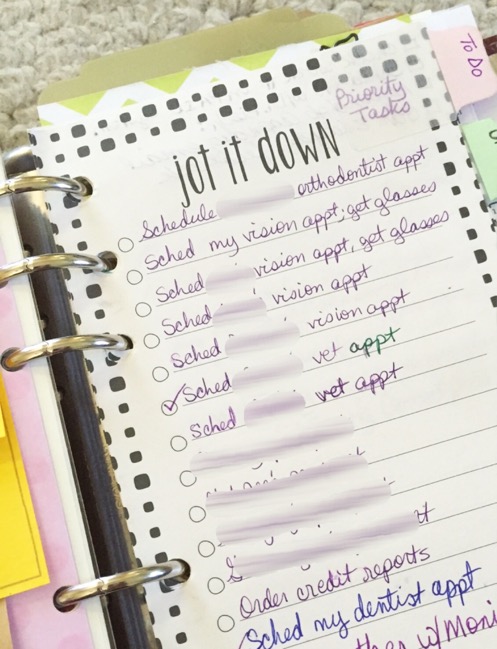 To Do
Priority
Tasks
jot it down
Schedule orthodontist appt
Sched my vision appt; get glasses
Sched vision appt, get glasses
Sched vision appt
Sched vision appt
Sched vet appt
Sched vet appt
Order credit reports
Sched my dentist appt
w/Moni